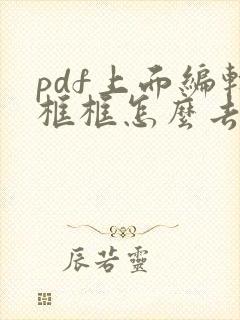 pdf上面編輯
框框怎麼去
辰若靈